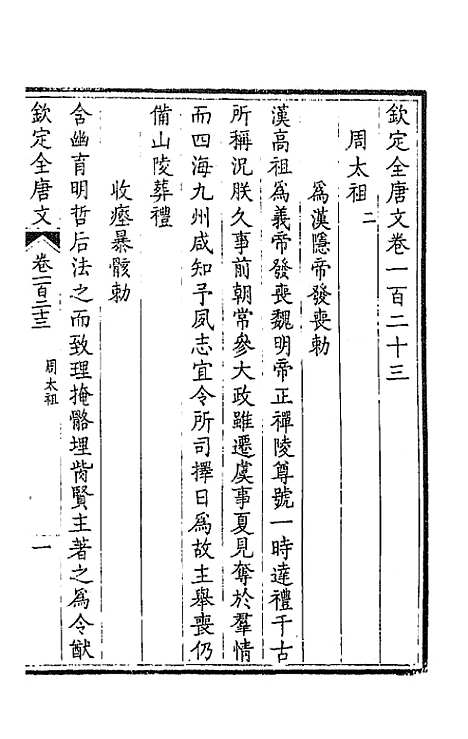 欽定全唐文卷一百二十三
周太祖二
為漢隱帝發喪勅
漢高祖為義帝發喪魏明帝正禪陵尊號一時達禮千古
所稱況朕久事前朝常參大政雖遷虞事夏見奪於羣情
而四海九州咸知予夙志宜令所司擇日為故主舉喪仍
備山陵葬禮
收瘞暴骸勅
含幽育明哲后法之而致理掩骼埋胔賢主著之為令猷
欽定全唐文
卷一百二十三
周太祖
一